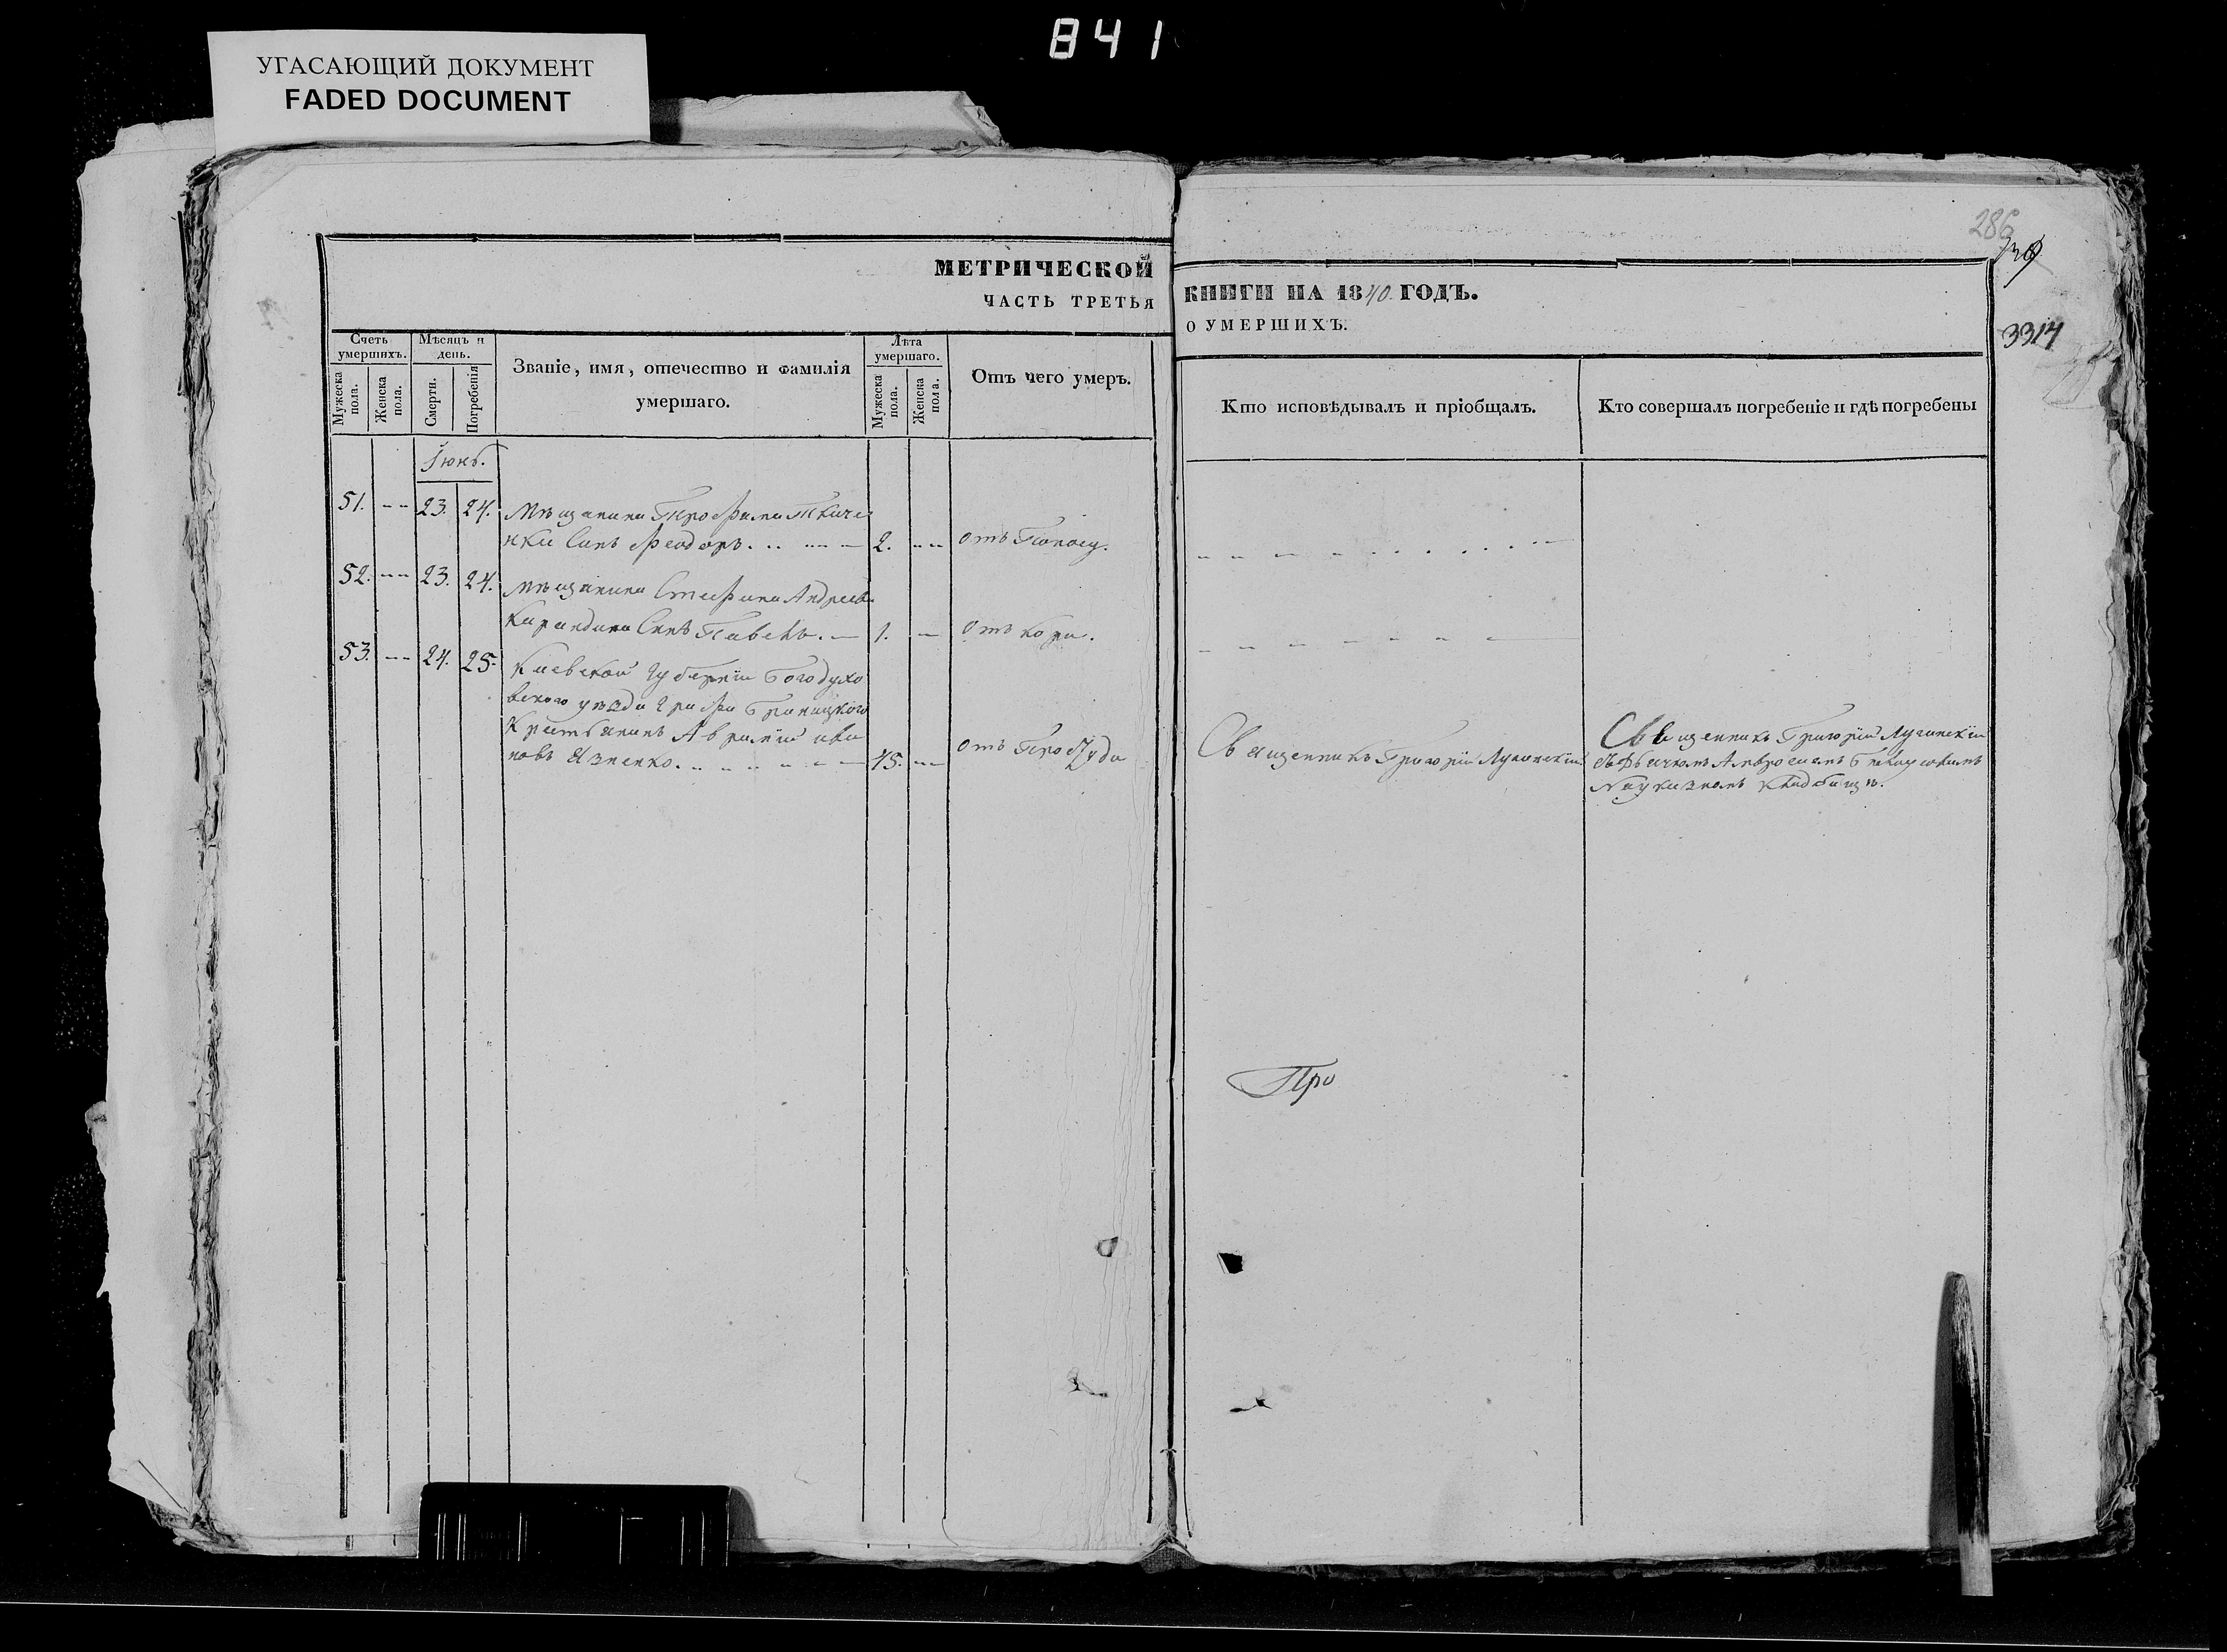 841
УГАСАЮЩИЙ ДОКУМЕНТ
FADED DOCUMENT
286
3314
МЕТРИЧЕСКОЙ
ЧАСТЬ ТРЕТЬЯ
КНИГИ НА 1840 ГОДЪ.
О УМЕРШИХЪ.
Счетъ умершихъ.
Мѣсяцъ и день.
Званіе, имя, отечество и фамилія умершаго.
Лѣта умершаго.
Отъ чего умеръ.
Мужеска пола.
Женска пола.
Смерти.
Погребенія
Мужеска пола.
Женска пола.
Кто исповѣдывалъ и пріобщалъ.
Кто совершалъ погребеніе и гдѣ погребены
Іюнь.
51. -- 23. 24. Мѣщанина Трофима
сынъ Феодоръ. 2. -- отъ
52. -- 23. 24. Мѣщанина Стефана Андреева
сынъ Павелъ. 1. - отъ кори.
53. -- 24. 25. Кіевской губерніи Богодухо
вскаго уѣзда графа Браницкого
Крестьянинъ Аврамій Ива
новъ 45. -- отъ Простуды
Священникъ Григорій
Священникъ Григорій
кладбищѣ.
Про